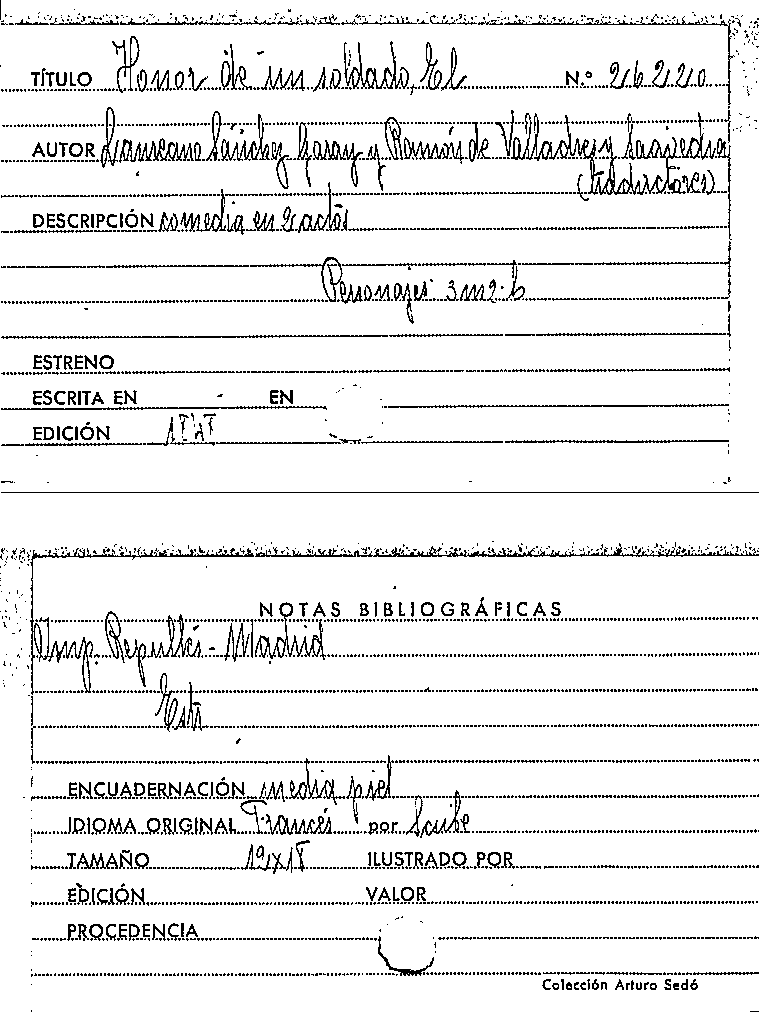 TÍTULO Honor de un soldado, El N.° 26220
AUTOR Laureano Sánchez Garay y Ramón de Valladres y Saavedra
(traductores)
DESCRIPCIÓN comedia en 2 actos
Personajes: 3 m 2 h
ESTRENO
ESCRITA EN EN
EDICIÓN 1848
NOTAS BIBLIOGRÁFICAS
Imp. Repullés - Madrid
ENCUADERNACIÓN media piel
IDIOMA ORIGINAL Francés por Scribe
TAMAÑO 12x18 ILUSTRADO POR
EDICIÓN VALOR
PROCEDENCIA
Colección Arturo Sedó